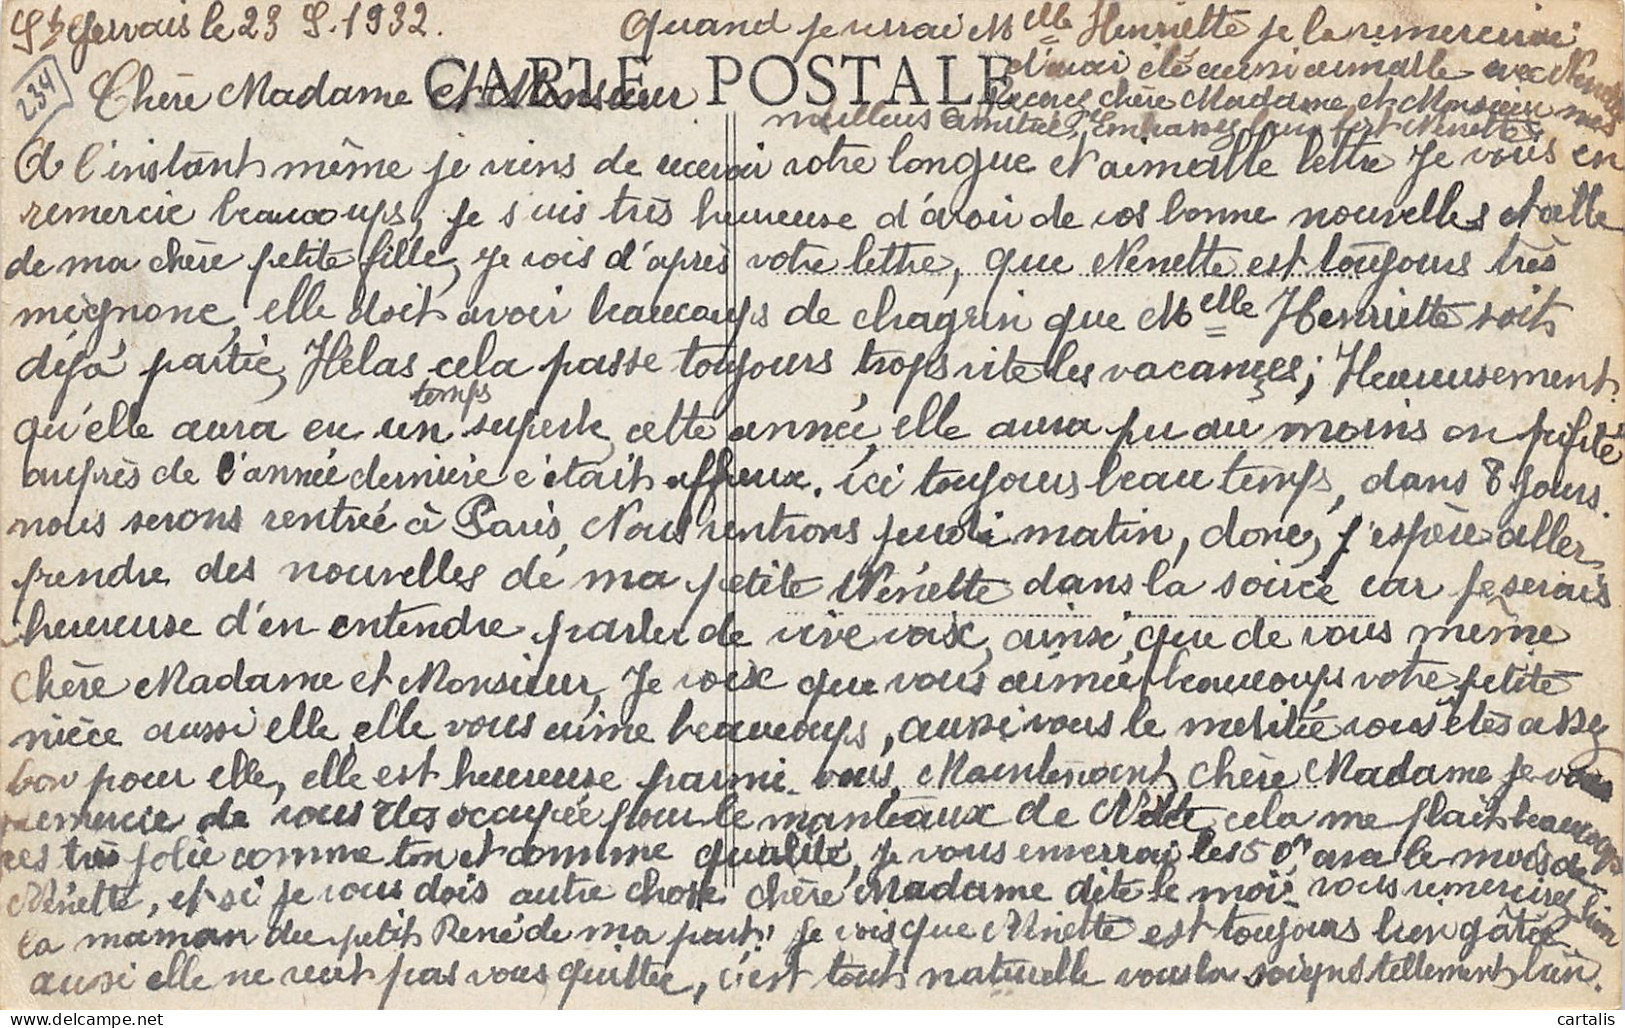 St Gervais le 23 S. 1932.
234
CARTE POSTALE
Chère Madame et Monsieur
A l'instant même je viens de recevoir votre longue et aimable lettre je vous en
remercie beaucoups, je suis très heureuse d'avoir de vos bonne nouvelles et celle
de ma chère petite fille, je vois d'après votre lettre, que Nenette est toujours très
mignone, elle doit avoir beaucoups de chagrin que Melle Henriette soit
déjà partie, Hélas cela passe toujours trops vite les vacances; Heureusement
qu'elle aura eu un temps superbe cette année, elle aura pu au moins en profité
auprès de l'année dernière c'était affreux. ici toujours beau temps, dans 8 jours.
nous serons rentrée à Paris, Nous rentrons jeudi matin, donc, j'espère aller
prendre des nouvelles de ma petite Nénette dans la soirée car je serais
heureuse d'en entendre parler de vive voix, ainsi que de vous même
Chère Madame et Monsieur, Je voix que vous aimée beaucoups votre petite
nièce aussi elle, elle vous aime beaucoups, aussi vous le meritée vous êtes assez
bon pour elle, elle est heureuse parmi vous. Maintenant Chère Madame je vous
remercie de vous êtes occupée pour le manteaux de Nette cela me plait beaucoups
ces très jolie comme ton et comme qualité, je vous enverrai les 50 fr avec le mois de
Nénette, et si je vous dois autre chose chère Madame dite le moi. vous remercirez bien
la maman du petit René de ma part, je vois que Ninette est toujours bien gâtée
aussi elle ne veut pas vous quittée, c'est tout naturelle vous la soigné tellement bien.
Quand je verrai Melle Henriette je la remercierai
d'avoir été aussi aimable avec Nenette
Recevez chère Madame et Monsieur mes
meilleurs amitiés, Embrassez bien fort Nenette
cartalis